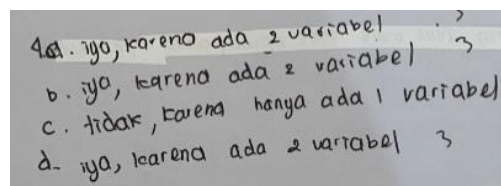 4a. iya, karena ada 2 variabel
b. iya, karena ada 2 variabel 3
c. tidak, karena hanya ada 1 variabel
d. iya, karena ada 2 variabel 3